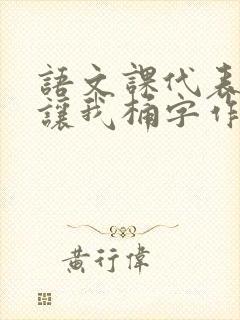 語文課代表
讓我桶字作
黃行偉